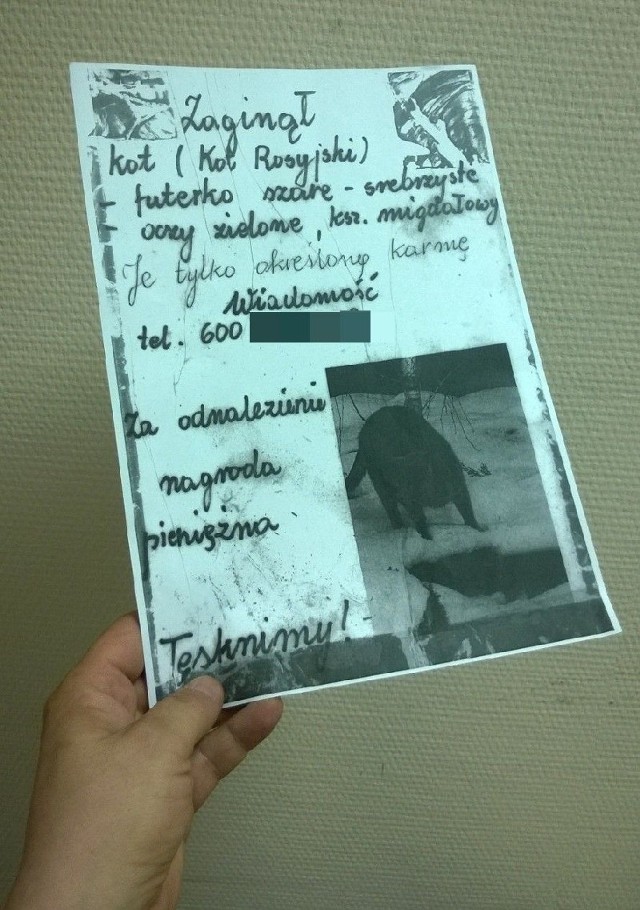 Zaginął
kot (Kot Rosyjski)
- futerko szare - srebrzyste
- oczy zielone, ksz. migdałowy
Je tylko określoną karmę
Wiadomość
tel. 600
Za odnalezienie
nagroda
pieniężna
Tęsknimy!